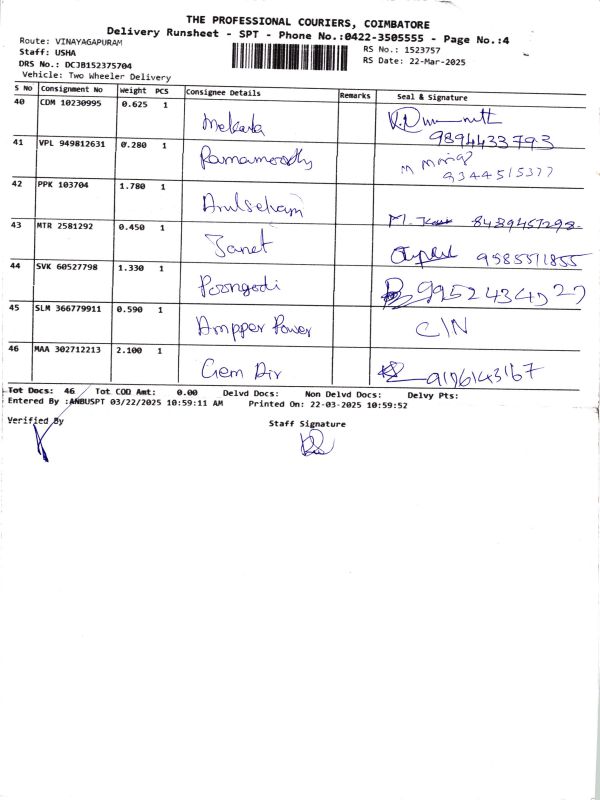 THE PROFESSIONAL COURIERS, COIMBATORE
Delivery Runsheet - SPT - Phone No.:0422-3505555 - Page No.:4
Route: VINAYAGAPURAM
Staff: USHA
DRS No.: DCJB152375704
Vehicle: Two Wheeler Delivery
RS No.: 1523757
RS Date: 22-Mar-2025
S No Consignment No Weight PCS Consignee Details Remarks Seal & Signature
40 CDM 10230995 0.625 1 Mekala 9894433793
41 VPL 949812631 0.280 1 Ramamoorthy 9344515377
42 PPK 103704 1.780 1 Arulselvam 8489457298
43 MTR 2581292 0.450 1 Janet 9585511855
44 SVK 60527798 1.330 1 Poongodi
45 SLM 366779911 0.590 1 Ampper Power C/N
46 MAA 302712213 2.100 1 Gem Air
Tot Docs: 46 Tot COD Amt: 0.00 Delvd Docs: Non Delvd Docs: Delvy Pts:
Entered By :ANBUSPT 03/22/2025 10:59:11 AM Printed On: 22-03-2025 10:59:52
Verified By
Staff Signature